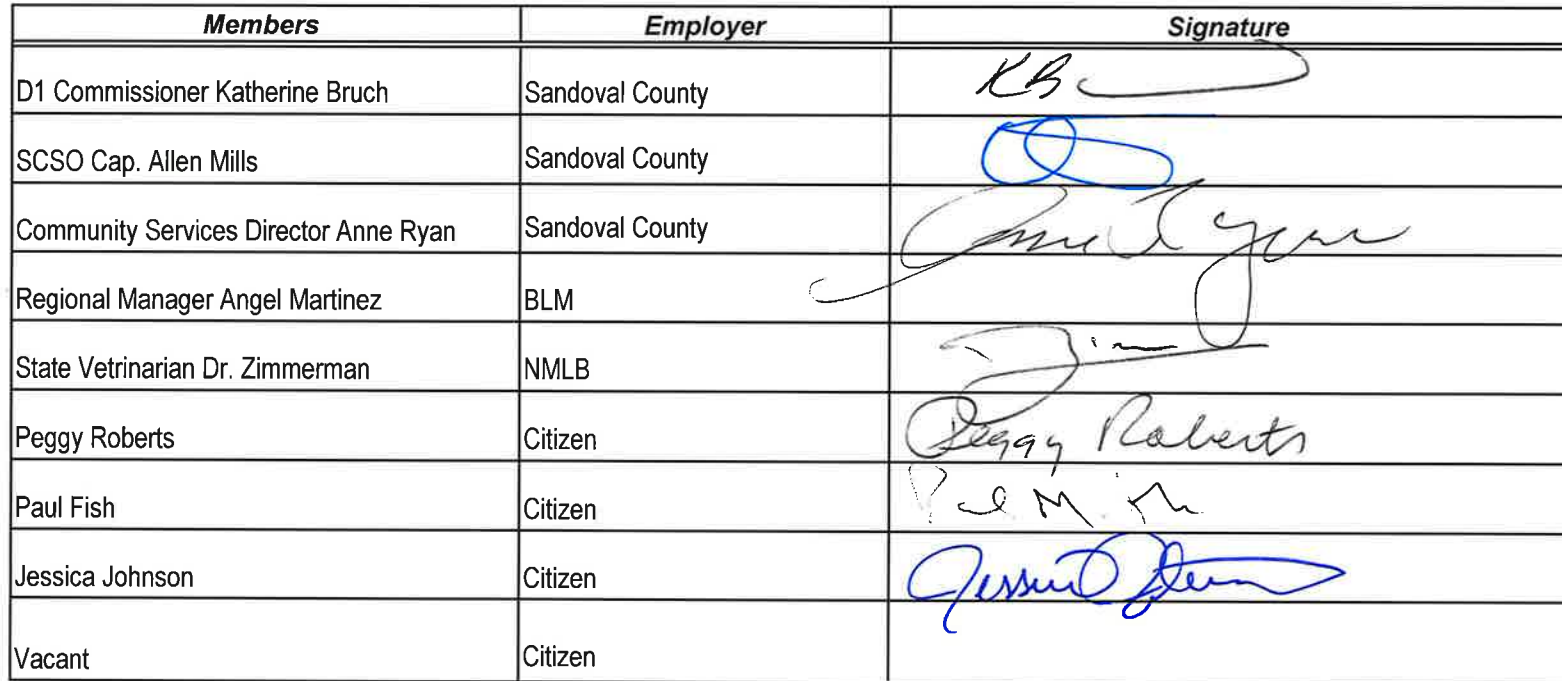 Members Employer Signature
D1 Commissioner Katherine Bruch Sandoval County KB
SCSO Cap. Allen Mills Sandoval County
Community Services Director Anne Ryan Sandoval County Anne Ryan
Regional Manager Angel Martinez BLM
State Vetrinarian Dr. Zimmerman NMLB
Peggy Roberts Citizen Peggy Roberts
Paul Fish Citizen
Jessica Johnson Citizen
Vacant Citizen